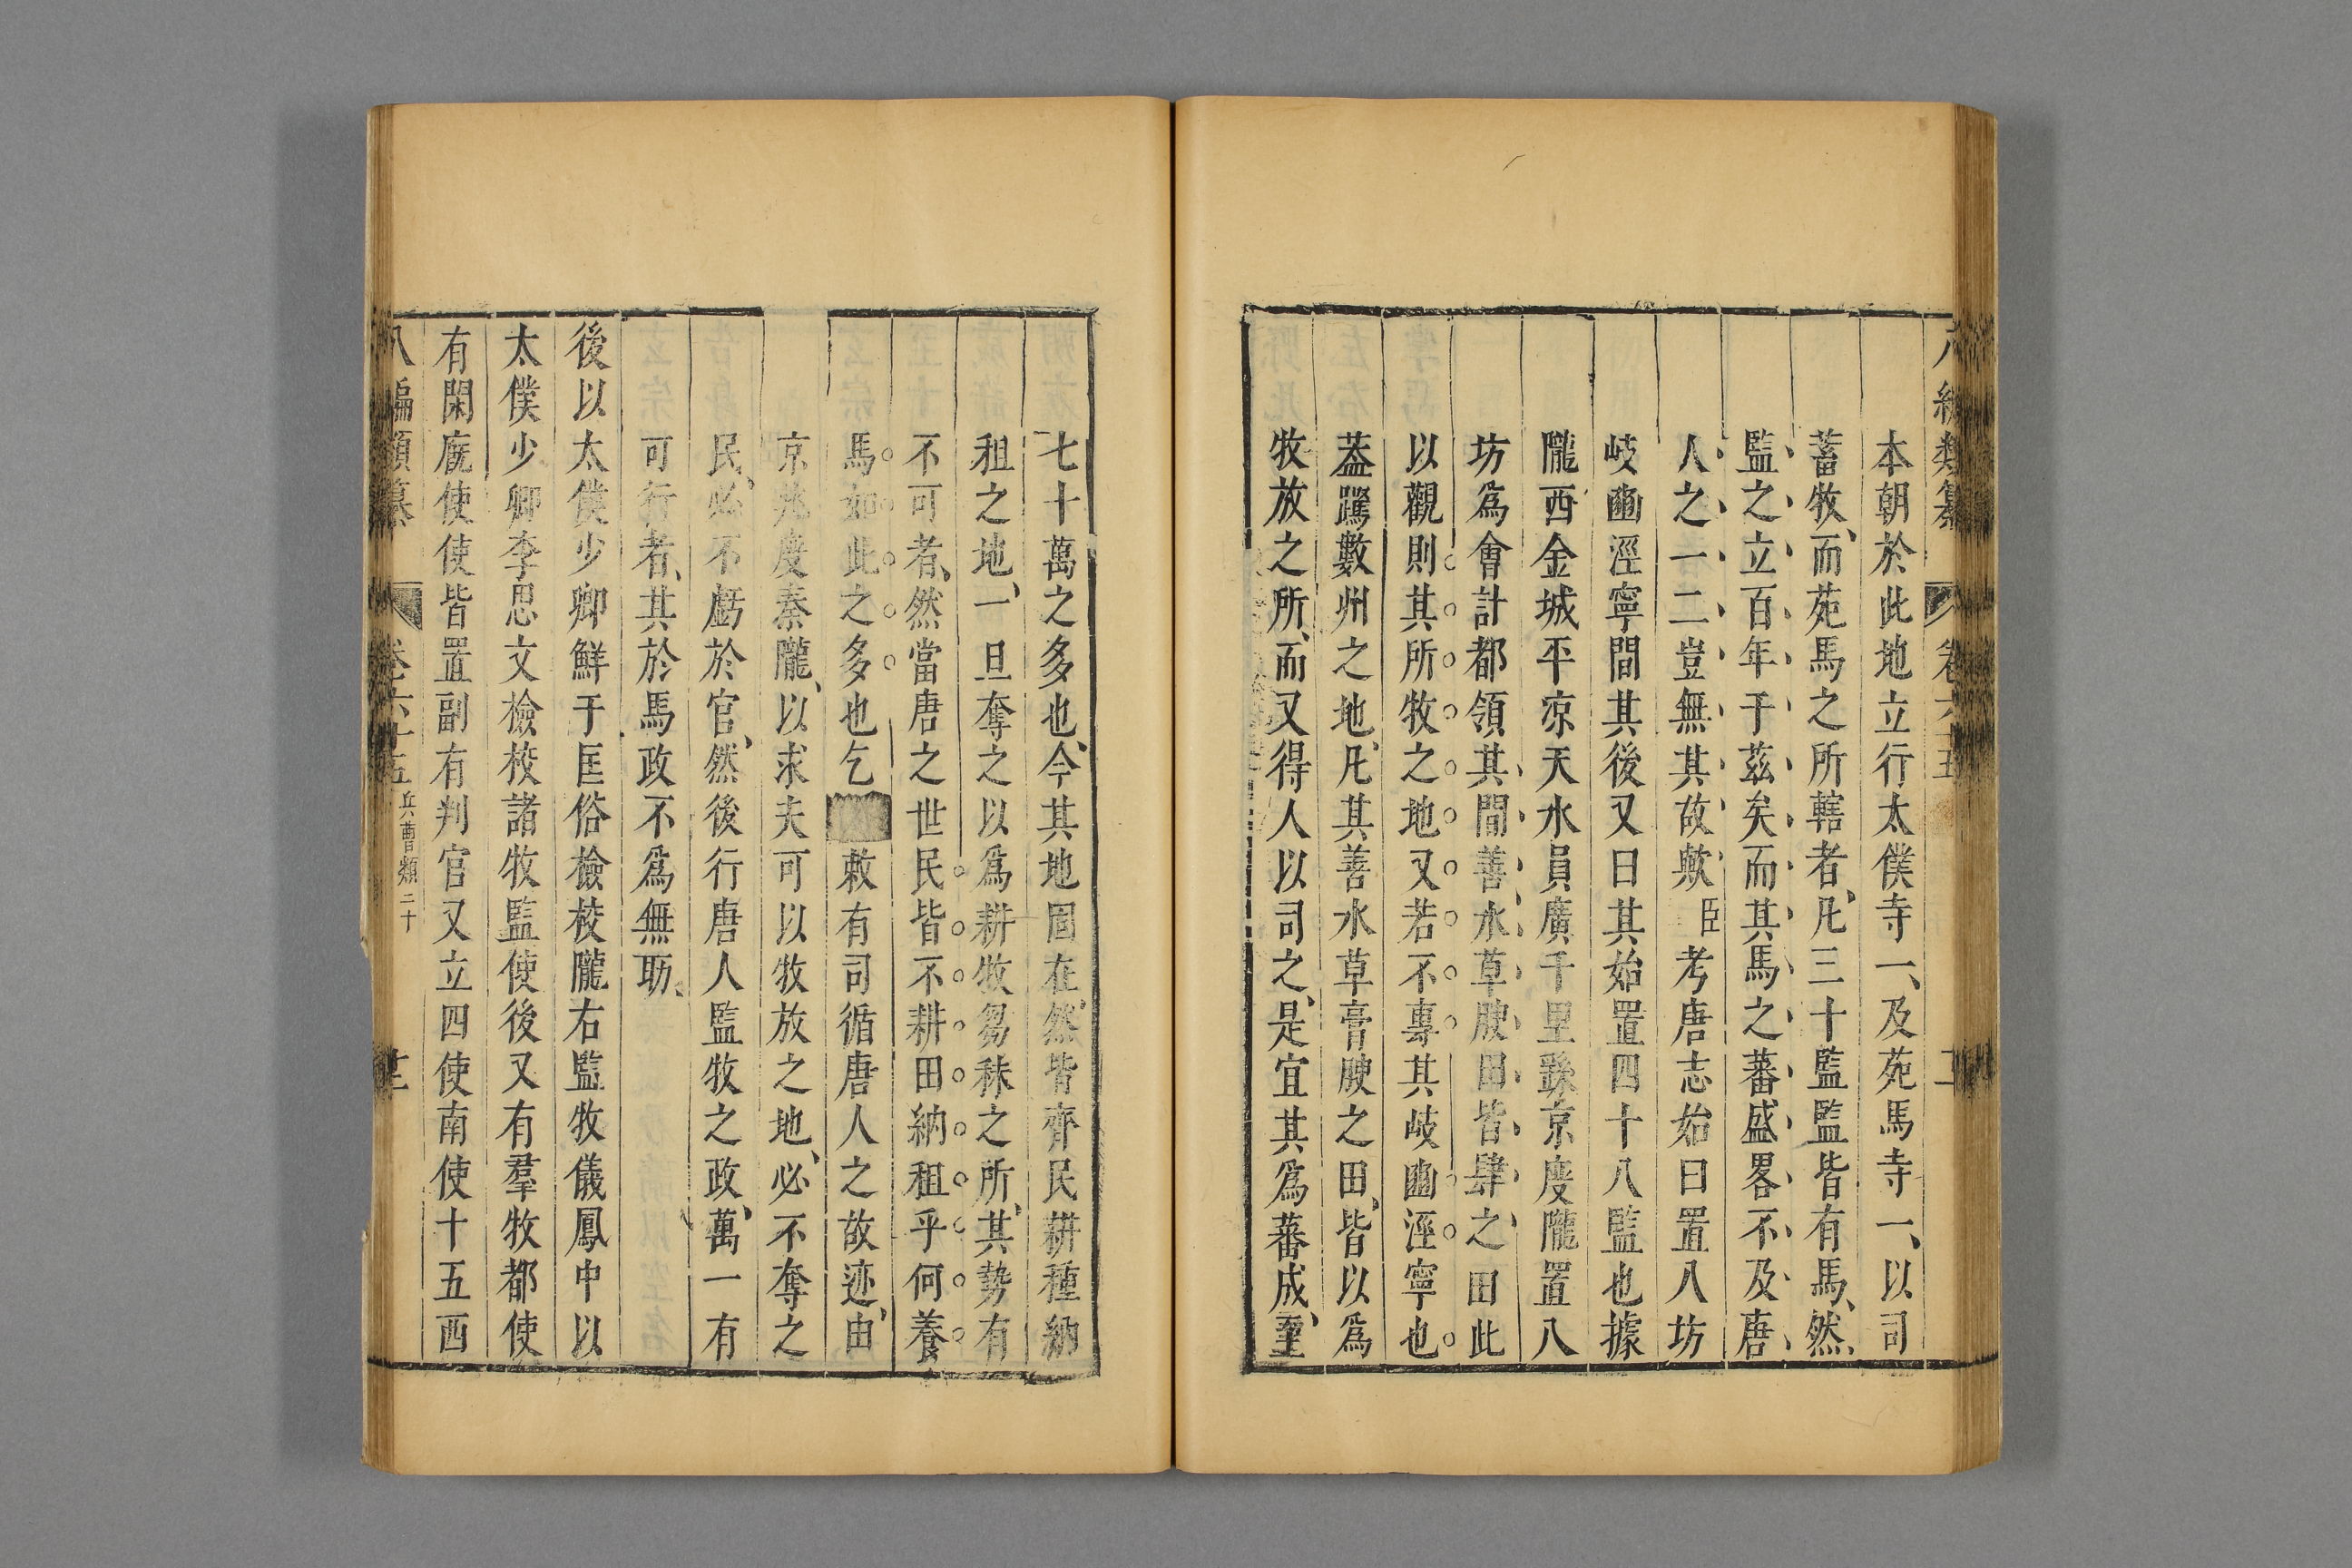 本朝於此地立行太僕寺一、及苑馬寺一、以司
蓄牧、而苑馬之所轄者、凡三十監監皆有馬、然
監之立百年于茲矣而其馬之蕃盛畧不及唐
人之一二豈無其故歟臣考唐志始曰置八坊
岐豳涇寧間其後又曰其始置四十八監也據
隴西金城平凉天水員廣千里繇京度隴置八
坊爲會計都領其間善水草腴田皆肆之田此
以觀則其所牧之地又若不專其岐豳涇寧也
葢跨數州之地、凡其善水草膏腴之田、皆以爲
牧放之所、而又得人以司之、是宜其爲蕃成、至
七十萬之多也、今其地固在、然皆齊民耕種納
租之地、一旦奪之以爲耕牧芻秣之所、其勢有
不可者、然當唐之世民皆不耕田納租乎何養
馬如此之多也乞敕有司循唐人之故迹、由
京兆度秦隴、以求夫可以牧放之地、必不奪之
民、必不虧於官、然後行唐人監牧之政、萬一有
可行者、其於馬政不爲無助、
後以太僕少卿鮮于匡俗檢校隴右監牧儀鳳中以
太僕少卿李思文檢校諸牧監使後又有羣牧都使
有閑廐使使皆置副有判官又立四使南使十五西
八編類纂 卷六十五 兵曹類二十